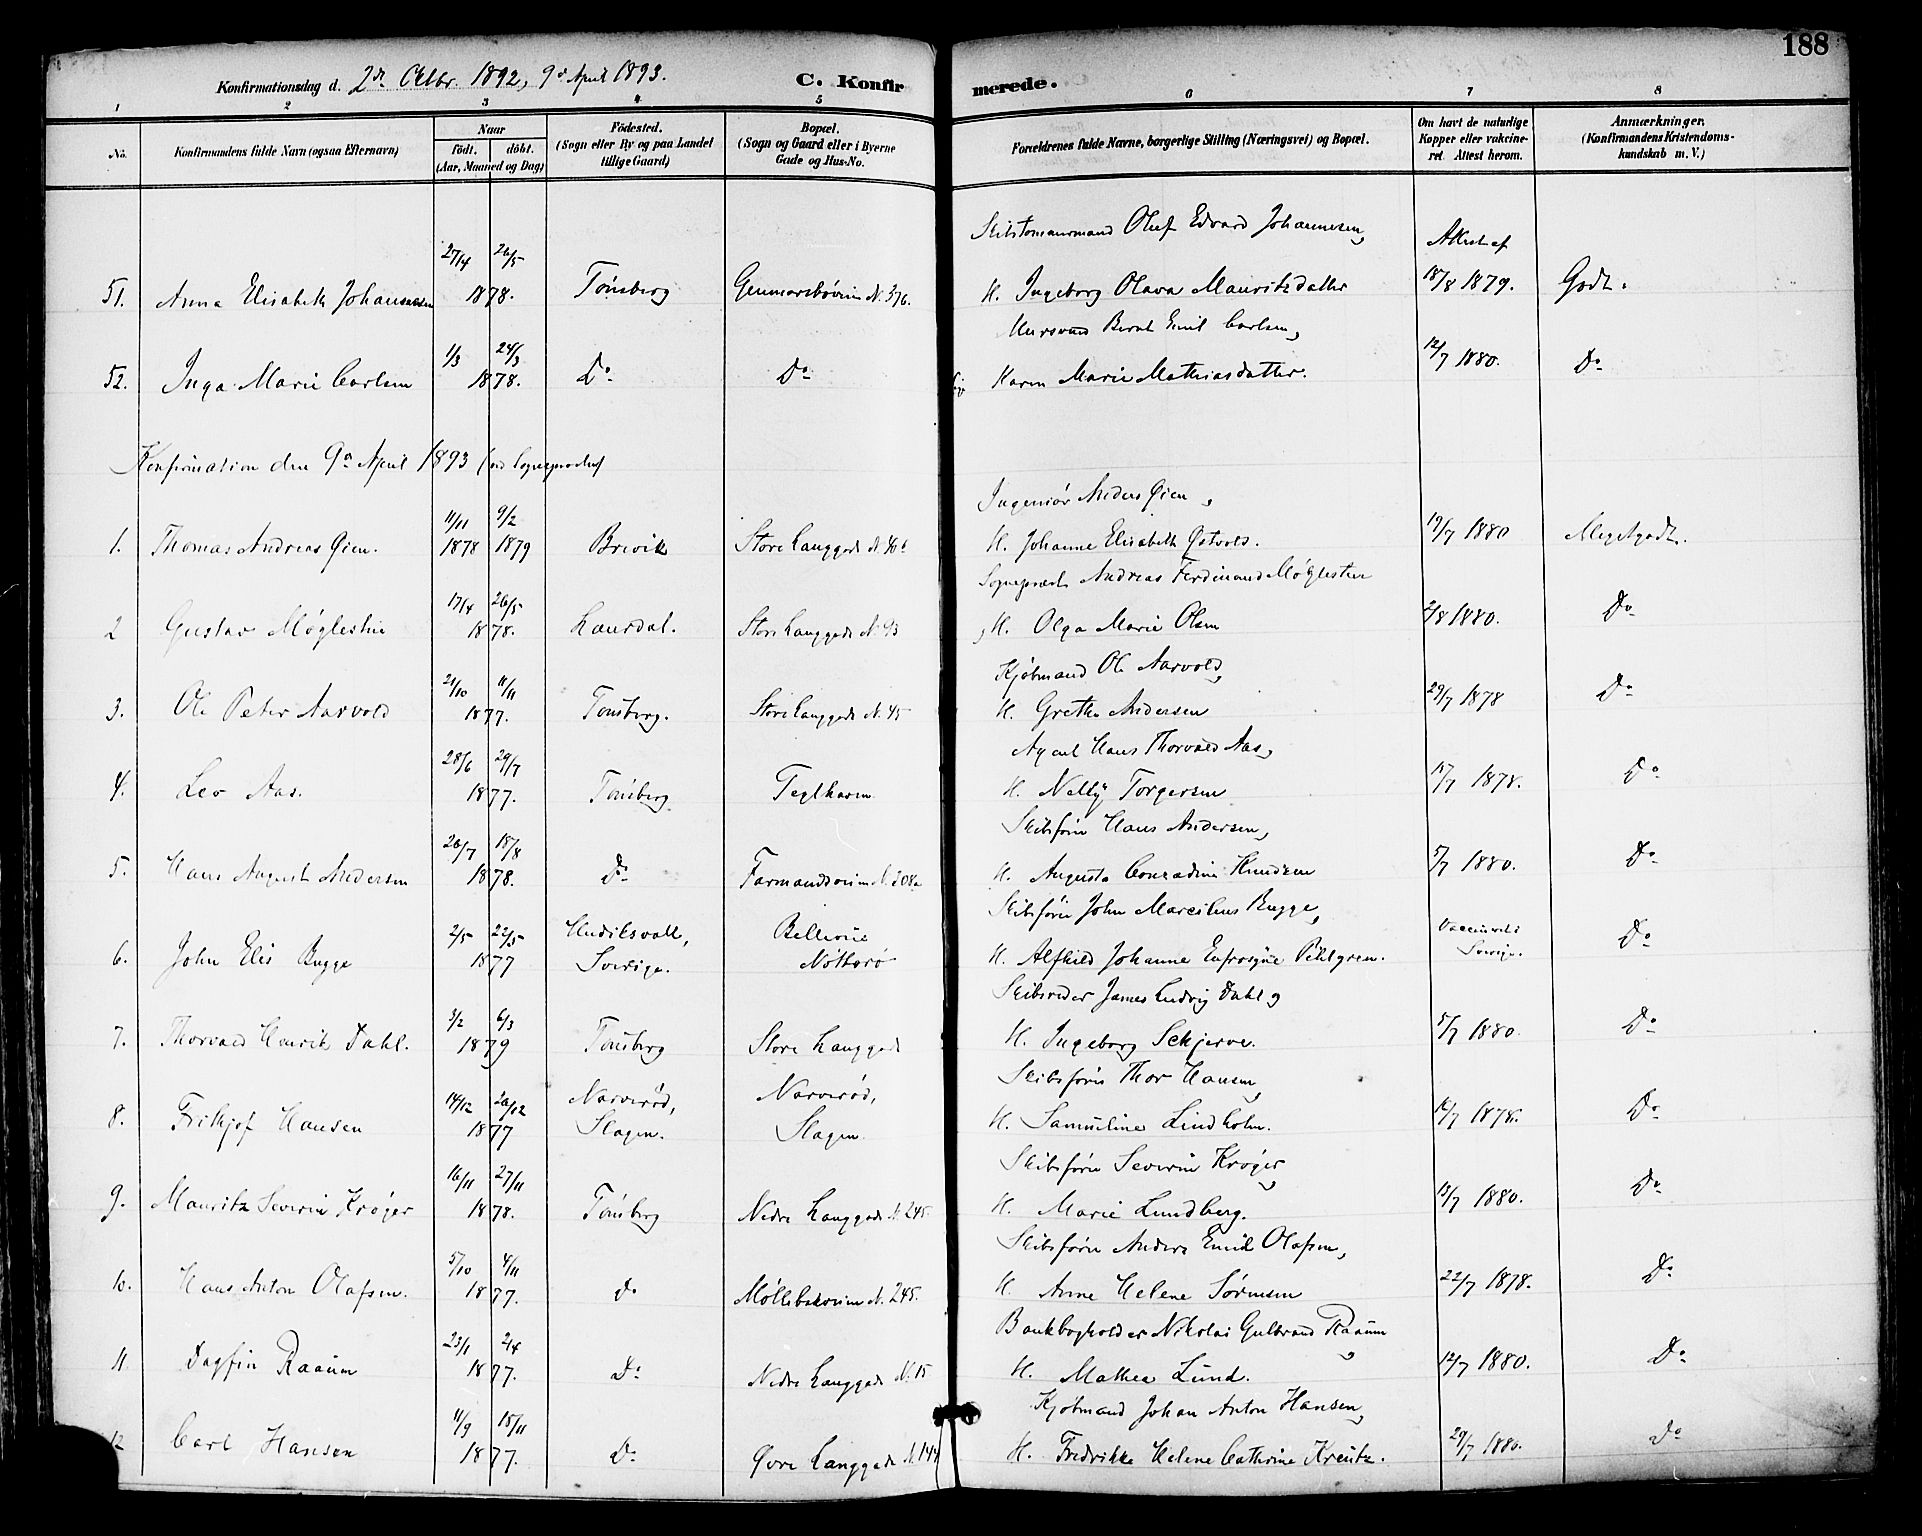 188
Konfirmationsdag d. 2den Oktbr. 1892, 9de April 1893.
C. Konfirmerede.
1 2 3 4 5 6 7 8
No.
Konfirmandens fulde Navn (ogsaa Efternavn)
Naar
födt. döbt.
(Aar, Maaned og Dag)
Födested.
(Sogn eller By og paa Landet
tillige Gaard)
Bopæl.
(Sogn og Gaard eller i Byerne
Gade og Hus-No.
Forældrenes fulde Navne, borgerlige Stilling (Næringsvei) og Bopæl.
Om havt de naturlige
Kopper eller vakcine-
ret. Attest herom.
Anmærkninger.
(Konfirmandens Kristendoms-
kundskab m. V.)
Skibstømmermand Oluf Edvard Johannesen,
27/4 26/5 Attest af
51. Anna Elisabeth Johannesen 1878. Tønsberg Gunnarsbøveien N. 376. H. Ingeborg Olava Mauritzdatter 18/8 1879. Godt.
Mursvend Bernt Emil Carlsen,
1/3 24/3
52. Inga Marie Carlsen 1878. Do Do Karen Marie Mathiasdatter. 12/7 1880. Do
Konfirmation den 9de April 1893 (ved Sogneprosten)
Ingeniør Anders Øien,
11/11 9/2
1. Thomas Andreas Øien. 1878 1879 Brevik Store Langgade N. 46b H. Johanne Elisabeth Østvold. 19/7 1880 Meget godt.
Sogneprest Andreas Ferdinand Møglestue
17/4 26/5
2 Gustav Møglestue 1878. Laurdal. Store Langgade N. 43 H. Olga Marie Olsen 2/8 1880. Do
Kjøbmand Ole Aarvold,
21/10 11/11
3. Ole Peter Aarvold 1877. Tønsberg. Store Langgade N. 45 H. Grethe Andersen 29/7 1878 Do
Agent Hans Thorvald Aas,
28/6 29/7
4. Leo Aas. 1877. Tønsberg Teglhaven H. Nelly Torgersen 15/7 1878. Do
Skibsfører Hans Andersen,
26/7 18/8
5. Hans August Andersen 1878. Do Farmandsveien N. 208a H. Augusta Conradine Knudsen 5/7 1880. Do
Skibsfører John Marcilius Bugge,
2/5 22/5
6. John Elis Bugge 1877 Hudiksvall, Sverige. Bellevue Nøtterø H. Alfhild Johanne Eufrosyne Pihlgren. Vaccineret i Sverige. Do
Skibsreder James Ludvig Dahl,
3/2 6/3
7. Thorvald Henrik Dahl. 1879 Tønsberg Store Langgade H. Ingeborg Schjerve. 5/7 1880. Do
Skibsfører Thor Hansen,
14/12 26/12
8. Frithjof Hansen 1877 Narverød, Slagen. Narverød, Slagen H. Samueline Lindholm. 16/7 1878. Do
Skibsfører Severin Krøger,
16/11 27/11
9. Mauritz Severin Krøger 1878. Tønsberg Nedre Langgade N. 245. H. Marie Lundberg. 13/7 1880. Do
Skibsfører Anders Emil Olafsen,
5/10 4/11
10. Hans Anton Olafsen. 1877. Do Møllebakveien N. 245. H. Anne Helene Sørensen 22/7 1878. Do
Bankbogholder Nikolai Gulbrand Raaum,
23/1 2/4
11. Dagfin Raaum 1877. Do Nedre Langgade N. 15 H. Mathea Lund. 12/7 1880. Do
Kjøbmand Johan Anton Hansen,
11/9 15/11
12 Carl Hansen 1877. Do Øvre Langgade N. 144 H. Fredrikke Helene Cathrine Kreutz. 29/7 1880. Do